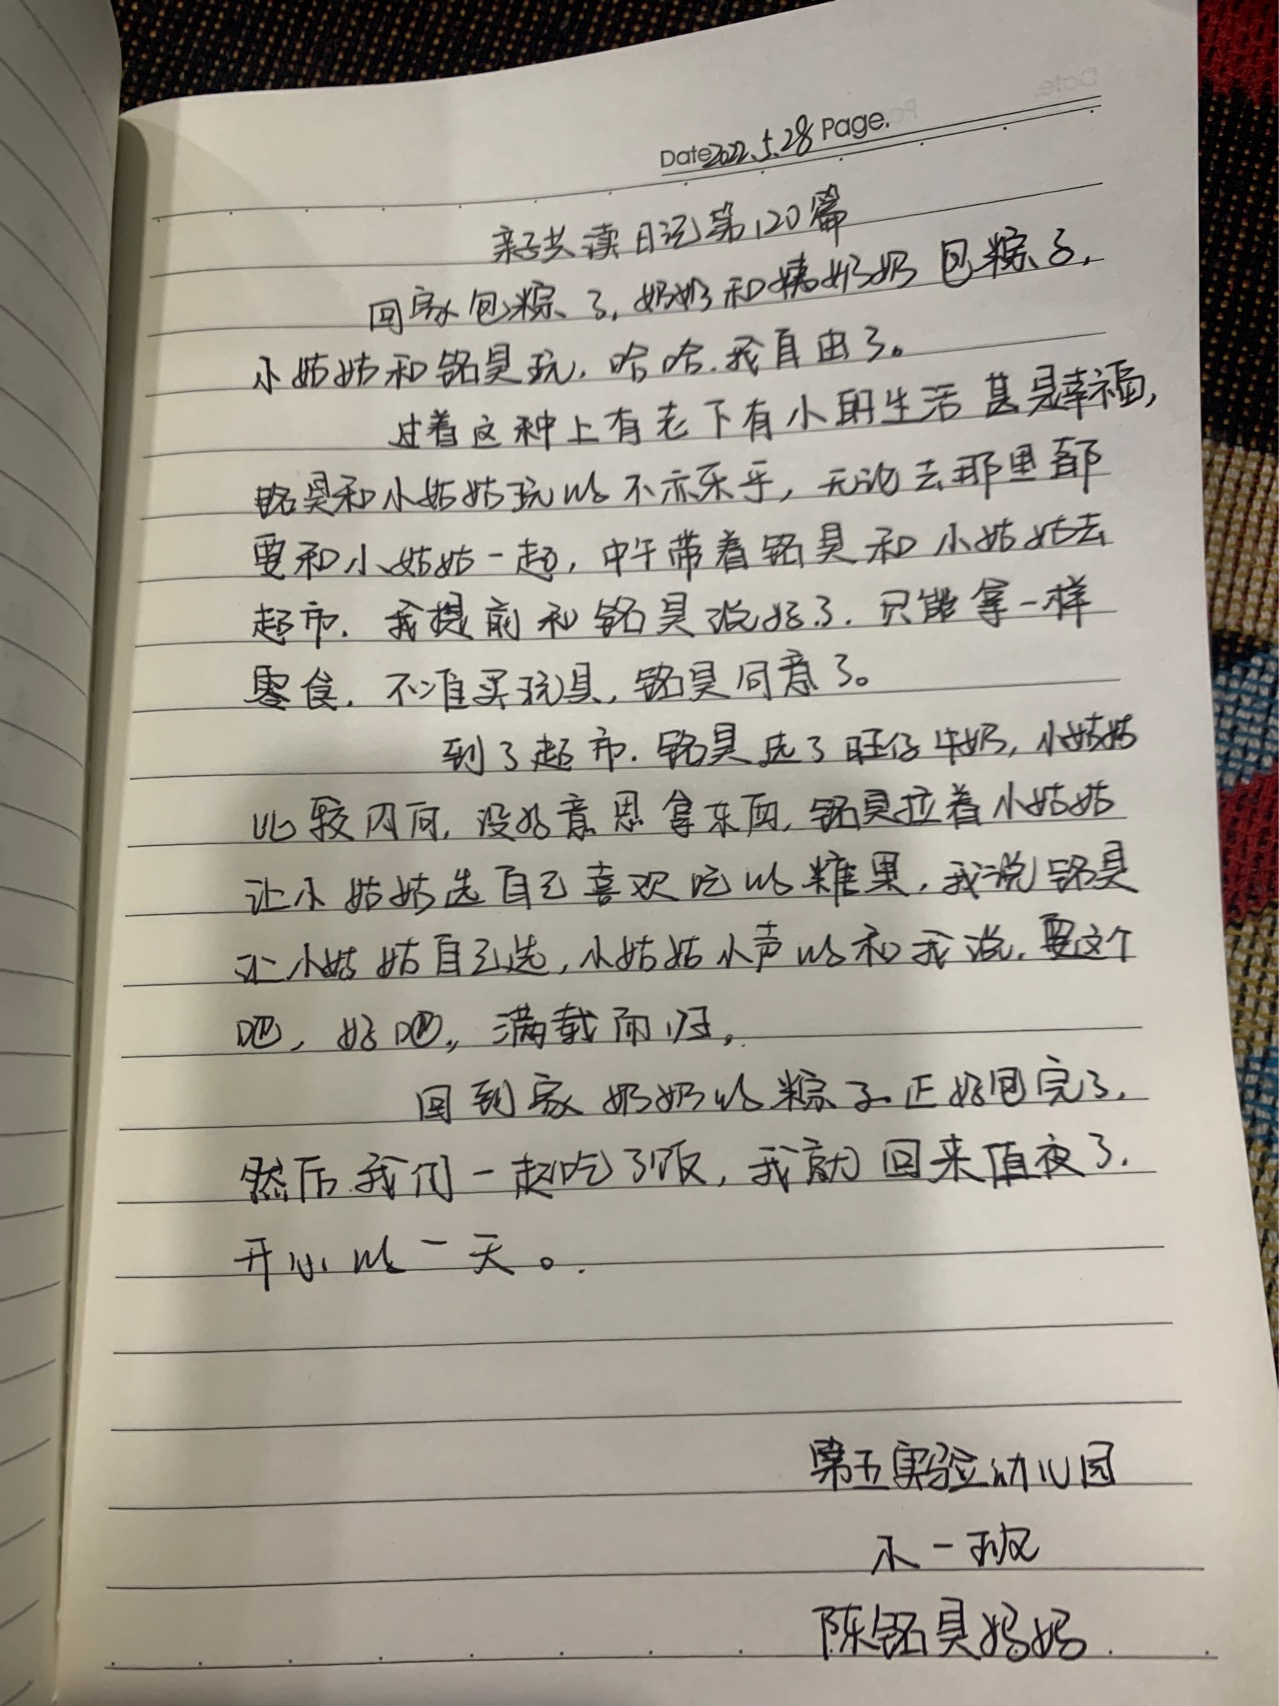 Date 2022.5.28 Page.
亲子共读日记第120篇
回家包粽子,奶奶和姨奶奶包粽子,
小姑姑和铭昊玩,哈哈.我自由了。
过着这种上有老下有小的生活甚是幸福,
铭昊和小姑姑玩的不亦乐乎,无论去那里都
要和小姑姑一起,中午带着铭昊和小姑姑去
超市.我提前和铭昊说好了.只能拿一样
零食.不准买玩具,铭昊同意了。
到了超市.铭昊选了旺仔牛奶,小姑姑
比较内向,没好意思拿东西,铭昊拉着小姑姑
让小姑姑选自己喜欢吃的糖果,我说铭昊
让小姑姑自己选,小姑姑小声的和我说.要这个
吧,好吧,满载而归。
回到家奶奶的粽子正好包完了,
然后我们一起吃了饭,我就回来值夜了.
开心的一天。.
第五实验幼儿园
小一班
陈铭昊妈妈.